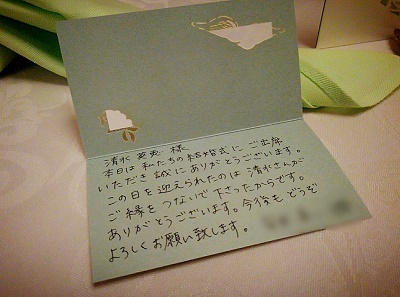 清水 英恵 様
本日は 私たちの 結婚式に ご出席
いただき 誠に ありがとうございます。
この日を 迎えられたのは 清水さんが
ご縁を つないで 下さったからです。
ありがとうございます。今後も どうぞ
よろしく お願い致します。